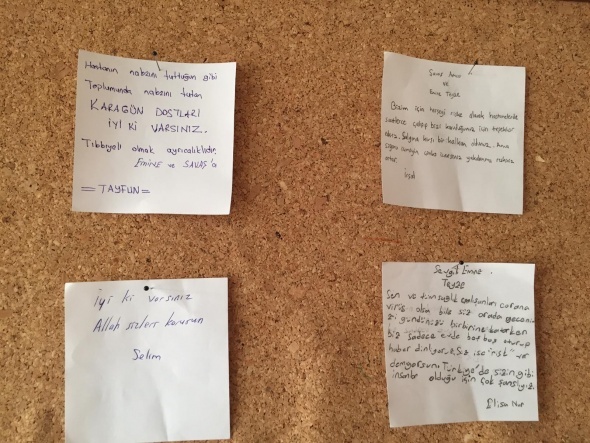 Hastanın nabzını tuttuğun gibi
Toplumunda nabzını tutan
KARAGÜN DOSTLARI
İYİ Kİ VARSINIZ.
Tıbbiyeli olmak ayrıcalıklıdır.
EMİNE ve SAVAŞ'a
= TAYFUN =
Savaş Amca
ve
Emine Teyze
Bizim için herşeyi riske alarak hastanelerde
saatlerce çalışıp bizi koruduğunuz için teşekkür
ederiz. Salgına karşı bir kalkan oldunuz. Ama
çoğu
artar.
Işıl
İyi ki varsınız
Allah sizleri korusun
Selim
Sevgili Emine
Teyze
Sen ve tüm sağlık çalışanları corona
virüs olsa bile siz orada geceni
zi gündüzünüzü birbirine katarken
biz sadece evde boş boş oturup
haber dinliyoruz. Siz ise "risk" var
demiyorsunuz. Türkiye'de sizin gibi
insanlar olduğu için çok şanslıyız.
Elisa Nur